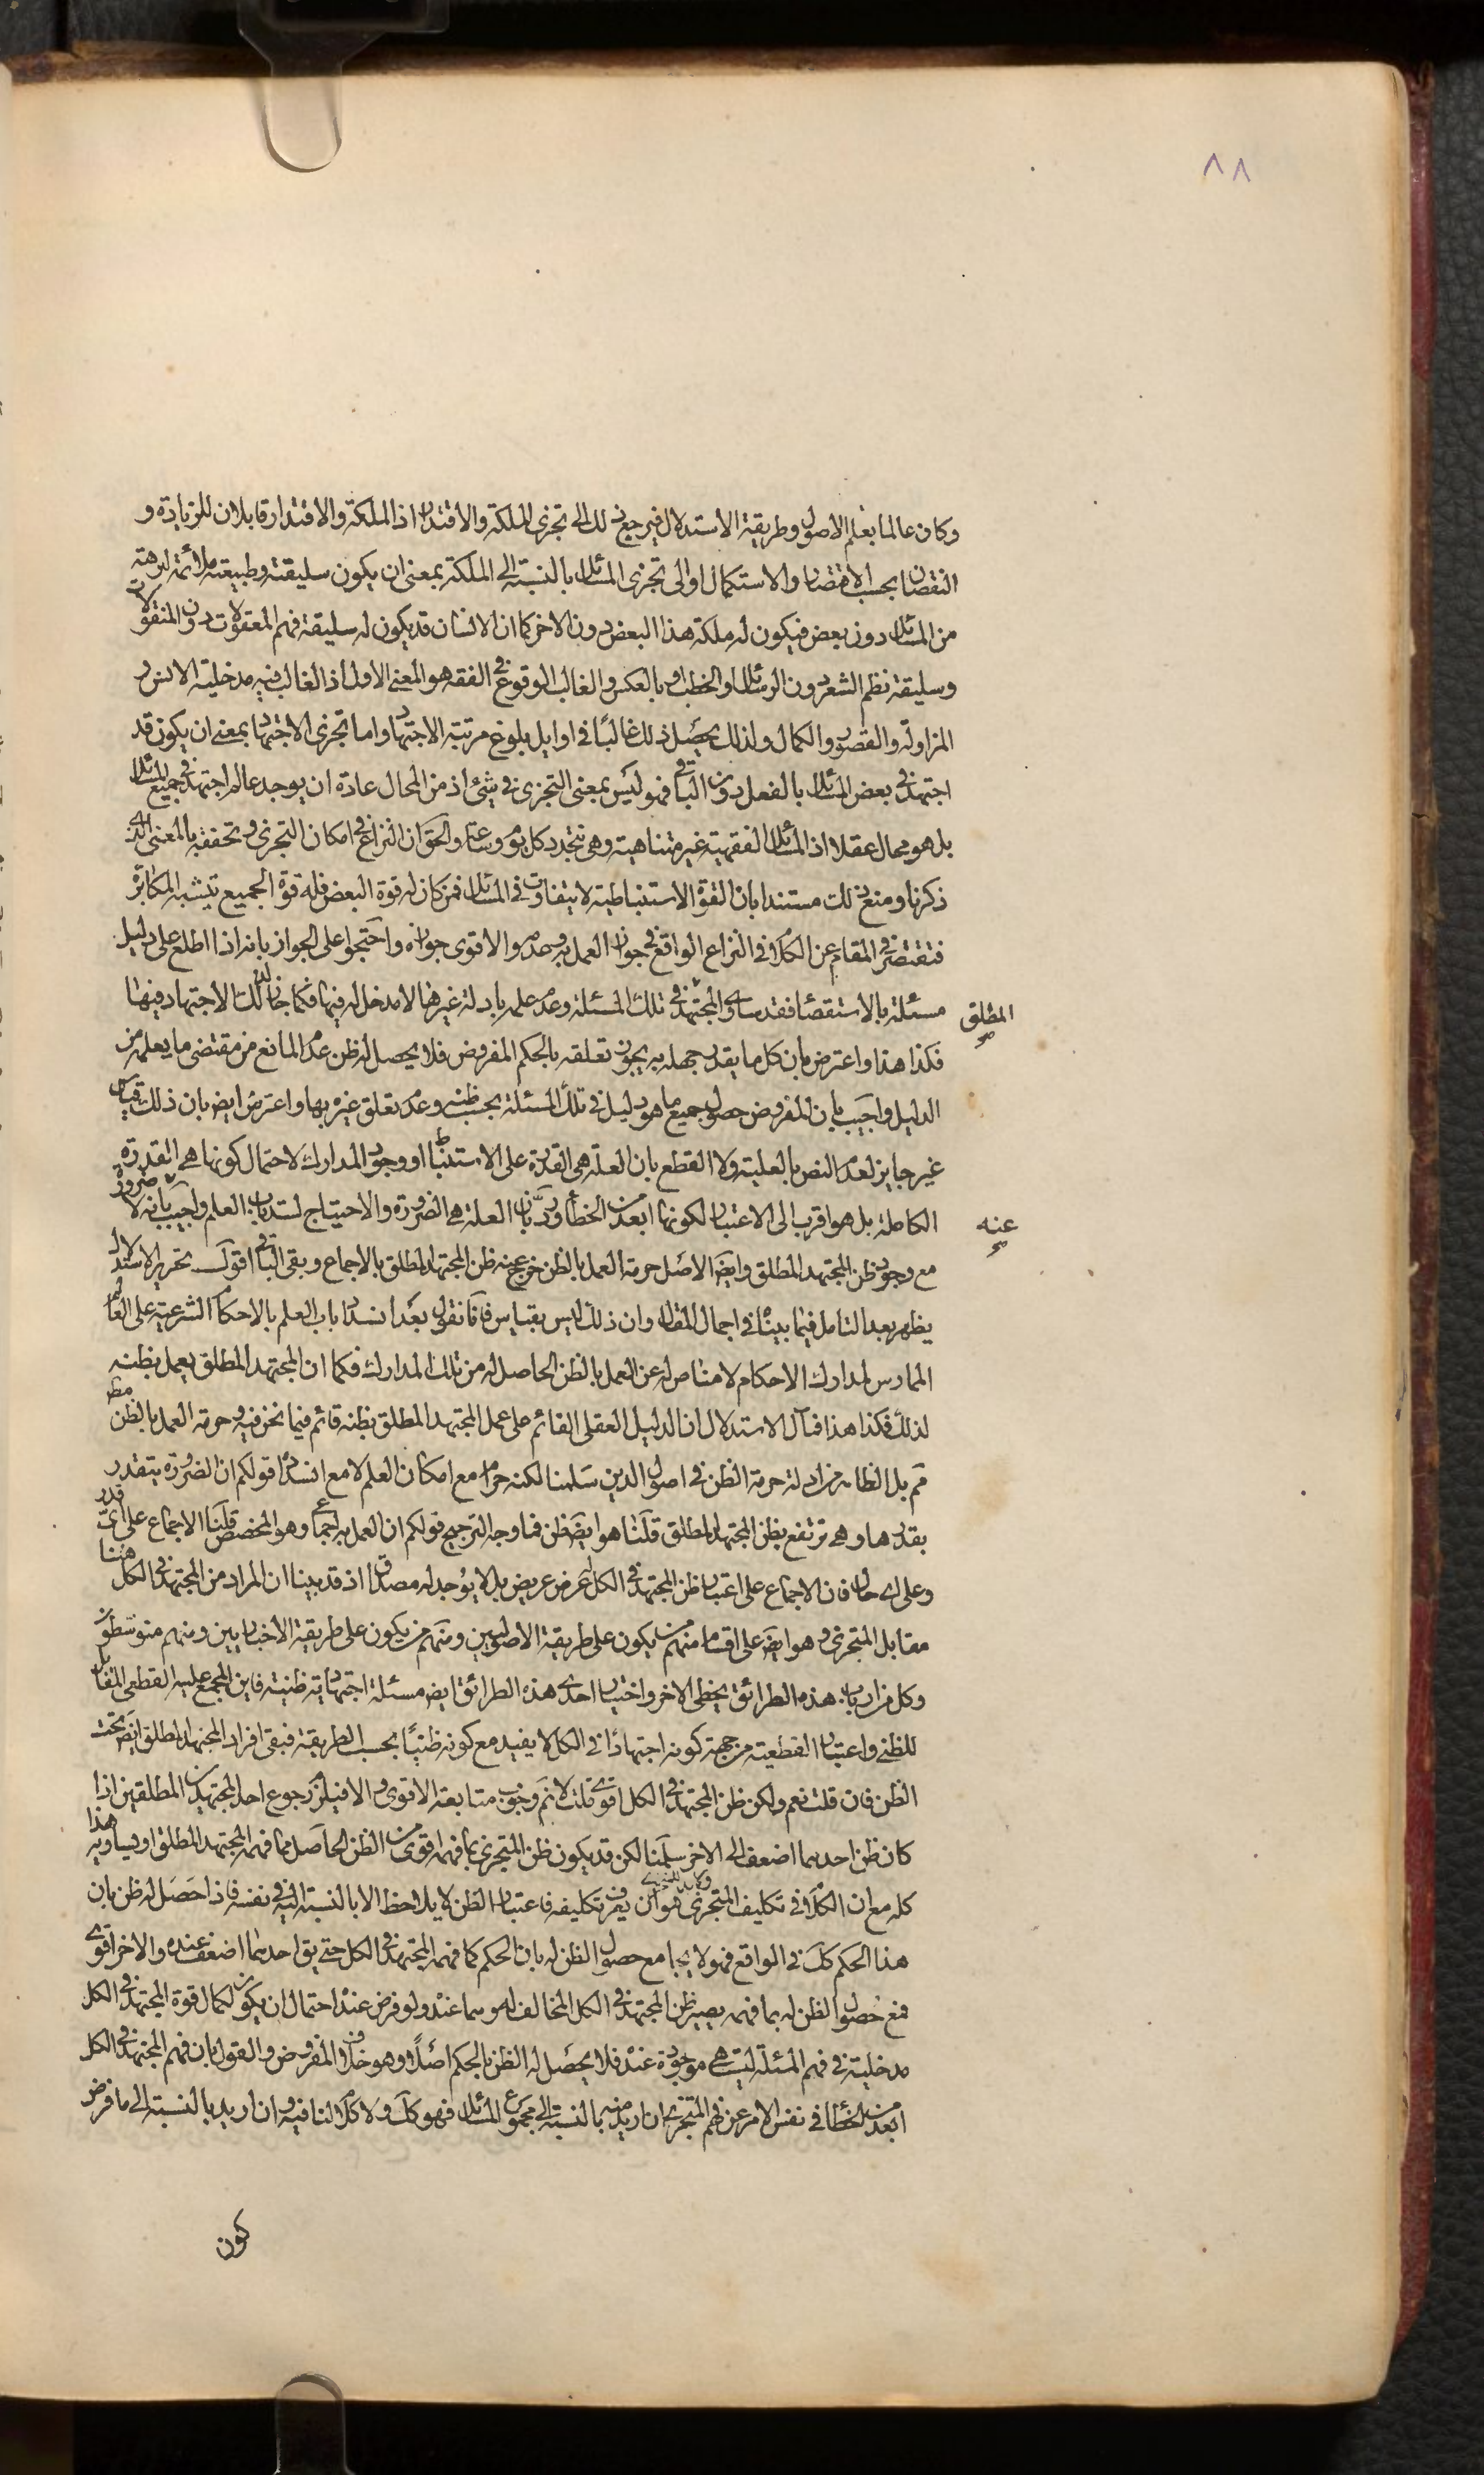 ٨٨
وكان عالما بعلم الاصول وطريقة الاستدلال فيرجع ذلك الى تجزى الملكة والاقتدار اذ الملكة والاقتدار قابلان للزيادة و
النقصان بحسب الاقتصار والاستكمال او الى تجزى المسائل بالنسبة الى الملكة بمعنى ان يكون سليقته وطبيعته ملائمة لبرهة
من المسائل دون بعض فيكون له ملكة هذا البعض دون الاخر كما ان الانسان قد يكون له سليقة فهم المعقولات دون المنقولات
وسليقة نظم الشعر دون الرسائل والخطب او بالعكس والغالب الوقوع في الفقه هو المعنى الاول اذ الغالب فيه مدخلية الانس و
المزاولة والقصور والكمال ولذلك يحصل ذلك غالبًا في اوايل بلوغ مرتبة الاجتهاد واما تجزى الاجتهاد بمعنى ان يكون قد
اجتهد في بعض المسائل بالفعل دون الباقي فهو ليس بمعنى التجزى في شئ اذ من المحال عادة ان يوجد عالم اجتهد في جميع المسائل
بل هو محال عقلا اذ المسائل الفقهية غير متناهية وهى تتجدد كل يوم وساعة والحق ان النزاع في امكان التجزى وتحققه بالمعنى الذى
ذكرنا ومنع ذلك مستندا بان القوة الاستنباطية لا يتفاوت في المسائل فمن كان له قوة البعض فله قوة الجميع يشبه المكابرة
فنقتصر في المقام عن الكلام في النزاع الواقع في جواز العمل به وعدمه والاقوى جوازه واحتجوا على الجواز بانه اذا اطلع على دليل
مسئلة بالاستقصاء فقد ساوى المجتهد في تلك المسئلة وعدم علمه بادلة غيرها لا مدخل له فيها فكما جاز لذلك الاجتهاد فيها
المطلق
صح
فكذا هذا واعترض بان كل ما يقدر جهله به يجوز تعلقه بالحكم المفروض فلا يحصل له ظن عدم المانع من مقتضى ما يعلمه من
الدليل واجيب بان المفروض حصول جميع ما هو دليل في تلك المسئلة بحسب ظنه وعدم تعلق غيره بها واعترض ايض بان ذلك قياس
غير جايز لعدم النص بالعلية ولا القطع بان العلة هى القدرة على الاستنباط او وجود المدارك لاحتمال كونها هى القدرة
الكاملة بل هو اقرب الى الاعتبار لكونها ابعد من الخطأ ورد بان العلة هى الضرورة والاحتياج لسد باب العلم واجيب بانه لا ضرورة
عنه
صح
مع وجود ظن المجتهد المطلق وايض الاصل حرمة العمل بالظن خرج عنه ظن المجتهد المطلق بالاجماع وبقى الباقي اقول تحرير الاستدلال
يظهر بعد التامل فيما بيناه في اجمال المقال وان ذلك ليس بقياس فانا نقول بعد انسداد باب العلم بالاحكام الشرعية على العالم
الممارس لمدارك الاحكام لا مناص له عن العمل بالظن الحاصل له من تلك المدارك فكما ان المجتهد المطلق يعمل بظنه
لذلك فكذا هذا فمآل الاستدلال ان الدليل العقلى القائم على عمل المجتهد المطلق بظنه قائم فيما نحن فيه وحرمة العمل بالظن مط
مم بل الظاهر من ادلة حرمة الظن في اصول الدين سلمنا لكنه حرام مع امكان العلم لا مع انسداده قولكم ان الضرورة يتقدر
بقدرها وهى ترتفع بظن المجتهد المطلق قلنا هو ايض ظن فما وجه الترجيح قولكم ان العمل به اجماعى وهو المخصص قلنا الاجماع على اى قدر
وعلى اى حال فان الاجماع على اعتبار ظن المجتهد في الكل له عرض عريض بل لا يوجد له مصداق اذ قد بينا ان المراد من المجتهد في الكل هنا
مقابل المتجزى وهو ايض على اقسام منهم من يكون على طريقة الاصوليين ومنهم من يكون على طريقة الاخباريين ومنهم متوسطون
وكل من ارباب هذه الطرائق يخطى الاخر واختيار احدى هذه الطرائق ايض مسئلة اجتهادية ظنية فاين المجمع عليه القطعى المقابل
للظنى واعتبار القطعية من جهة كونه اجتهادًا في الكل لا يفيد مع كونه ظنيًا بحسب الطريقة فبقى افراد المجتهد المطلق ايض تحت
الظن فان قلت نعم ولكن ظن المجتهد في الكل اقوى قلت لا نم وجوب متابعة الاقوى والا فيلزم رجوع احد المجتهدين المطلقين اذا
كان ظن احدهما اضعف الى الاخر سلمنا لكن قد يكون ظن المتجزى بما فهمه اقوى من الظن الحاصل مما فهمه المجتهد المطلق او يساويه هذا
كله مع ان الكلام في تكليف المتجزى هو ان يعرف تكليفه فاعتبار الظن لا يلاحظ الا بالنسبة اليه في نفسه فاذا حصل له ظن بان
هذا الحكم كك في الواقع فهو لا يجامع حصول الظن له بان الحكم كما فهمه المجتهد في الكل حتى يق احدهما اضعف عنده والاخر اقوى
فمع حصول الظن له بما فهمه يصير ظن المجتهد في الكل المخالف له موهوما عنده ولو فرض عنده احتمال ان يكون لكمال قوة المجتهد في الكل
مدخلية في فهم المسئلة ليست هى موجودة عنده فلا يحصل له الظن بالحكم اصلًا وهو خلاف المفروض والقول بان فهم المجتهد في الكل
ابعد من الخطأ في نفس الامر عن فهم المتجزى ان اريد منه بالنسبة الى مجموع المسائل فهو كك ولا كلام لنا فيه وان اريد بالنسبة الى ما فرض
كون